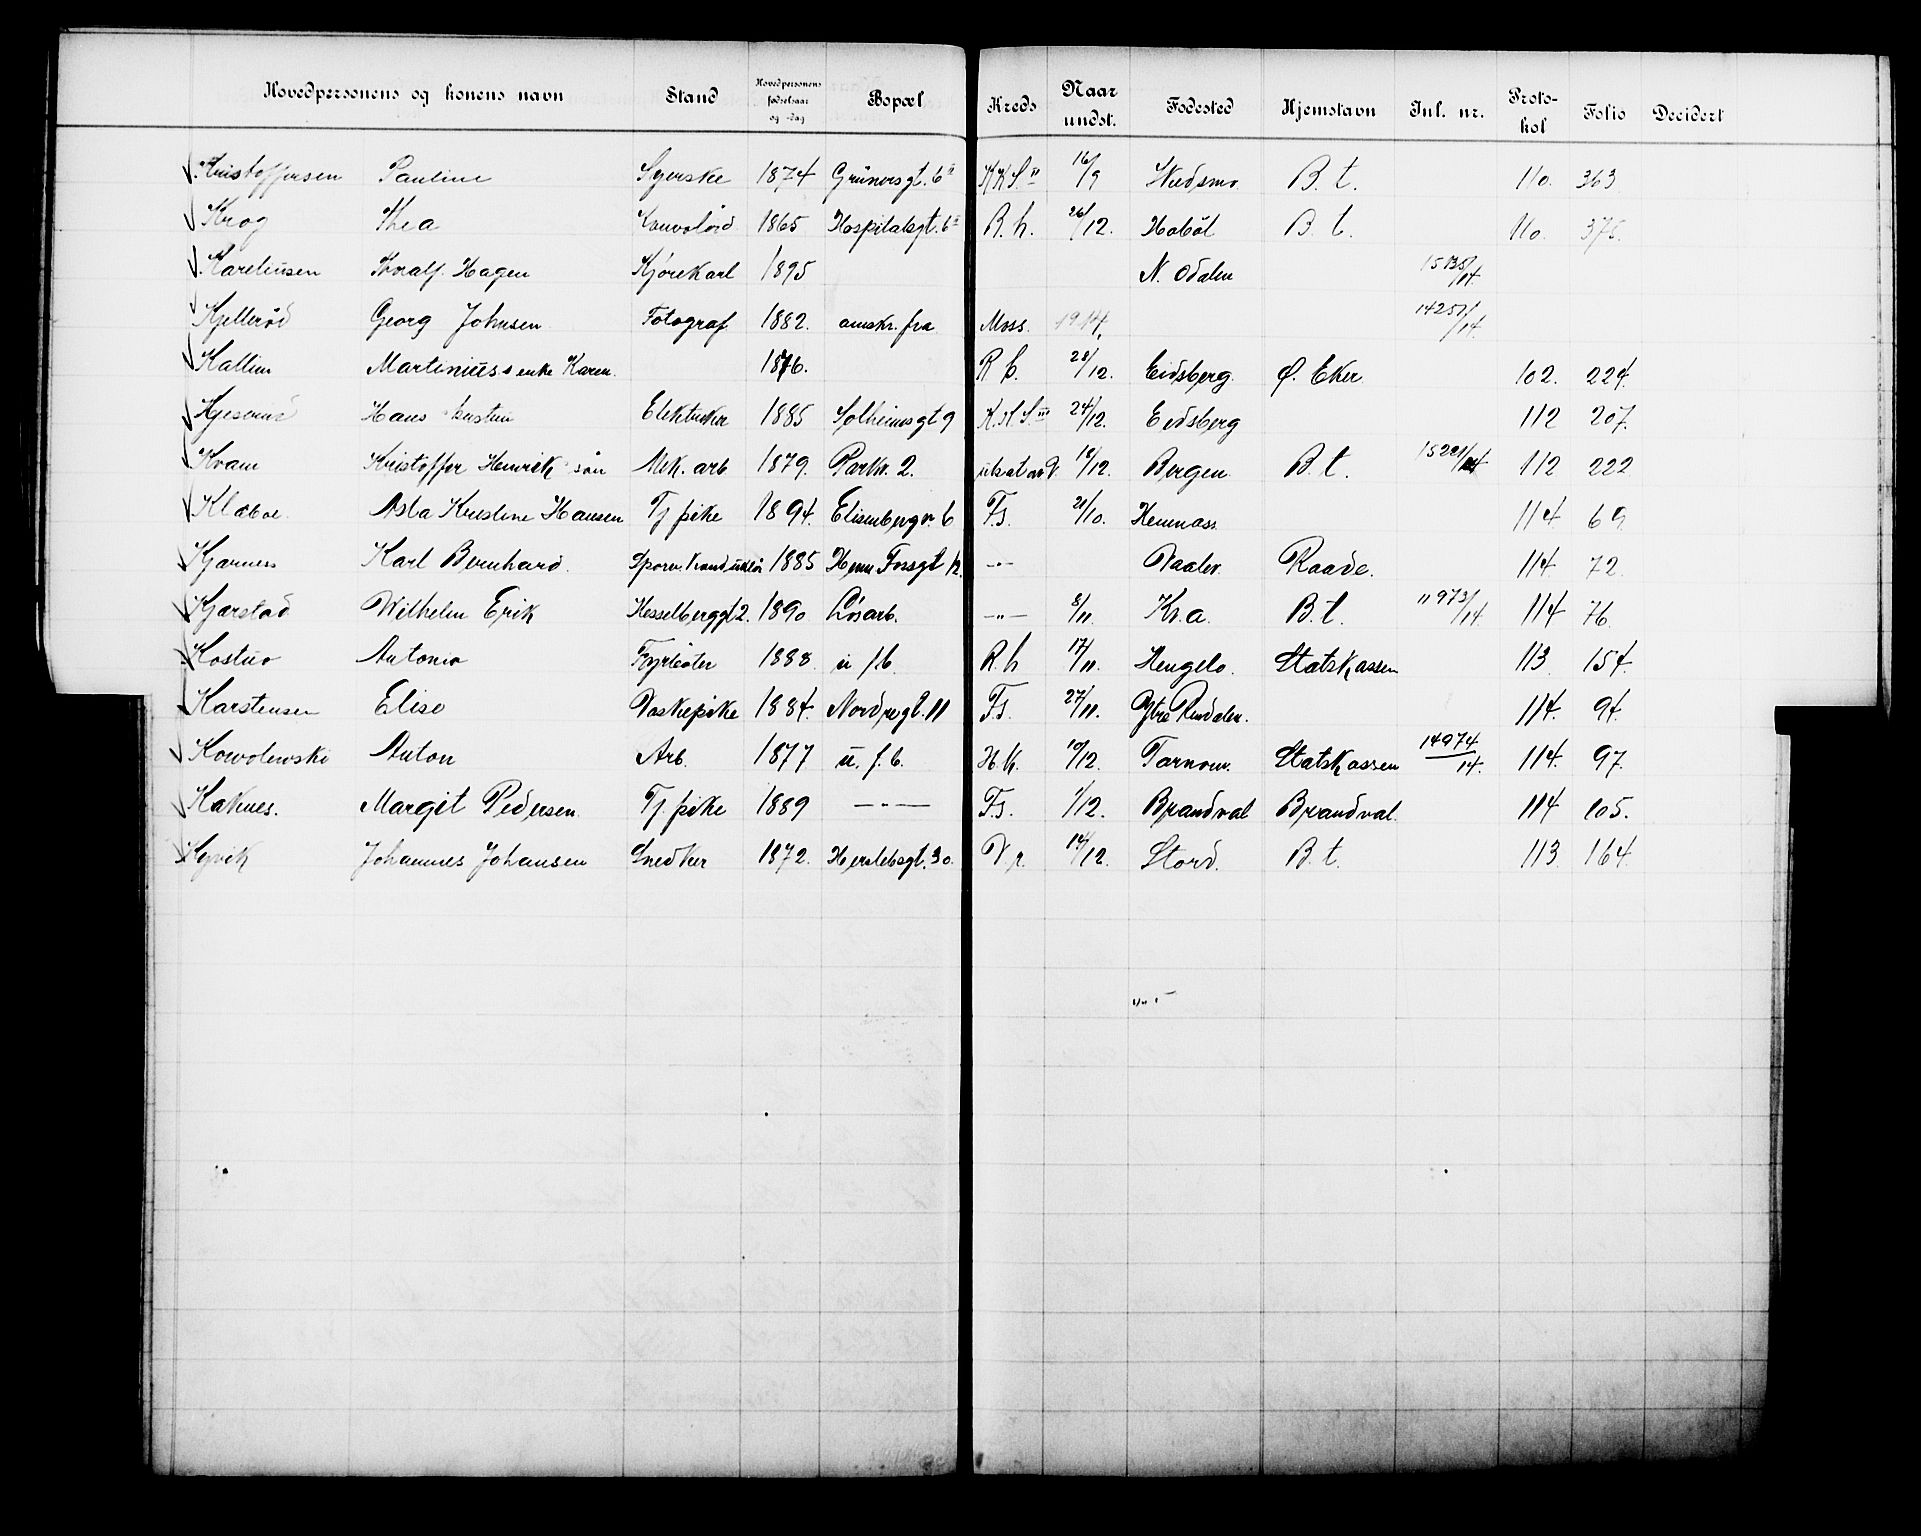 Hovedpersonens og konens navn Stand Hovedpersonens fødselsaar og -dag Bopæl Kreds Naar undst. Fødested Hjemstavn Inl. nr. Proto-kol Folio Decidert
Kristoffersen Pauline Syerske 1874 Grünersgt. 6 16/9 B. t. 110. 363
Krog Thea 1865 Hospitalsgt. 6 R. h. 26/12. Hobøl B. t. 110.
Hagen Kjørekarl 1895 N. Odalen
Kjellerød Georg Johnsen Fotograf 1882. omskr. fra Moss. 1914. 14257/14.
Martinius's enke Karen. 1876. 28/12. Eidsberg. Ø. Eker 102. 224.
Hans 1885 Solheimsgt 9 K. K. S. III 24/12. Eidsberg 112 207.
Kvam Kristoffer Henrik søn Mek. arb 1879. Parkv. 2. Bergen B. t. 112 222
Klæboe Asta Kristine Hansen Tj pike 1894. Elisenbergv. 6 F.s. 21/10. 114 69
Kjærnes Karl Bernhard. Sporv. konduktør 1885 12. -"- Vaaler Raade. 114 72.
Kjærstad Wilhelm Erik Hesselberggt 2. 1890 Løsarb. -"- 8/11. Kr.a. B. t. 11973/14. 114 76.
Antonio Fyrbøter 1888 u f. b. R. h 17/11. Hengelo. Statskassen 113 154.
Karstensen Elise Vaskepike 1884. Nordregt. 11 F.s. 27/11. Ytre Rendalen. 114. 94.
Kowolewski Anton Arb. 1877 u. f. b. H. K. 10/12. Statskassen 14974/14. 114. 97.
Kaknes. Margit Pedersen. Tj. pike 1889 — " — F.s. 1/12. Brandval Brandval. 114 105.
Johannes Johansen Snedker 1872. Herslebsgt. 30. 14/12. Stord. B. t. 113. 164.